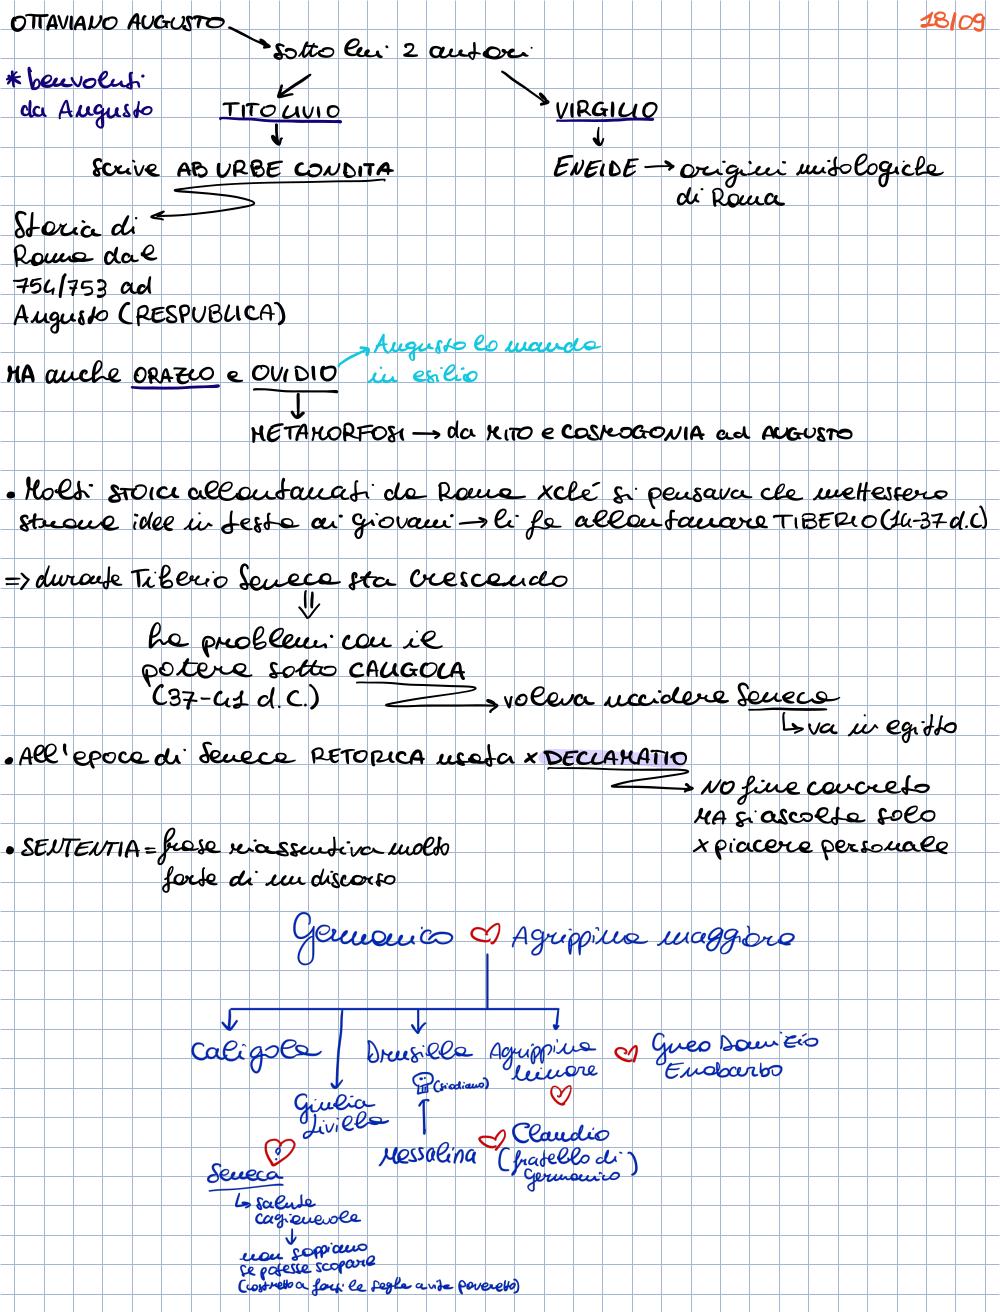 OTTAVIANO AUGUSTO
18/09
sotto lui 2 autori
* benvoluti
da Augusto
TITO LIVIO
VIRGILIO
scrive AB URBE CONDITA
ENEIDE → origini mitologiche
di Roma
Storia di
Roma dal
754/753 ad
Augusto (RESPUBLICA)
Augusto lo manda
in esilio
MA anche ORAZIO e OVIDIO
METAMORFOSI → da MITO e COSMOGONIA ad AUGUSTO
• Molti STOICI allontanati da Roma xché si pensava che mettessero
strane idee in testa ai giovani → li fa allontanare TIBERIO (14-37 d.C)
=> durante Tiberio Seneca sta crescendo
ha problemi con il
potere sotto CALIGOLA
(37-41 d.C.)
voleva uccidere Seneca
↳ va in egitto
• All'epoca di Seneca RETORICA usata x DECLAMATIO
NO fine concreto
MA si ascolta solo
x piacere personale
• SENTENTIA = frase riassuntiva molto
forte di un discorso
Germanico ♡ Agrippina maggiore
Caligola
Drusilla
Agrippina
minore
Gneo Domizio
Enobarbo
Giulia
Livilla
Messalina
Claudio
(fratello di
Germanico)
Seneca
?
↳ salute
cagionevole
non sappiamo
se potesse scopare
(costretto a farsi le seghe a vita poveretto)